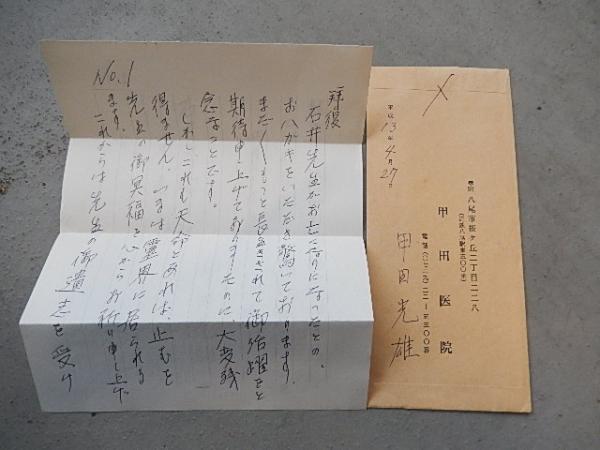 拝復
石井先生がお亡くなりになったとの、
おハガキをいただき驚いております。
まだまだもっと長生きされて御活躍をと
期待申し上げておりましたのに、大変残
念なことです。
しかしこれも天命とあれば、止むを
得ません。いまは霊界に居られる
先生の御冥福を心からお祈り申し上げ
ます。
これからは先生の御遺志を受け
No.1
八尾市桜ヶ丘二丁目二二八
甲田医院
甲田光雄
平成13年4月27日